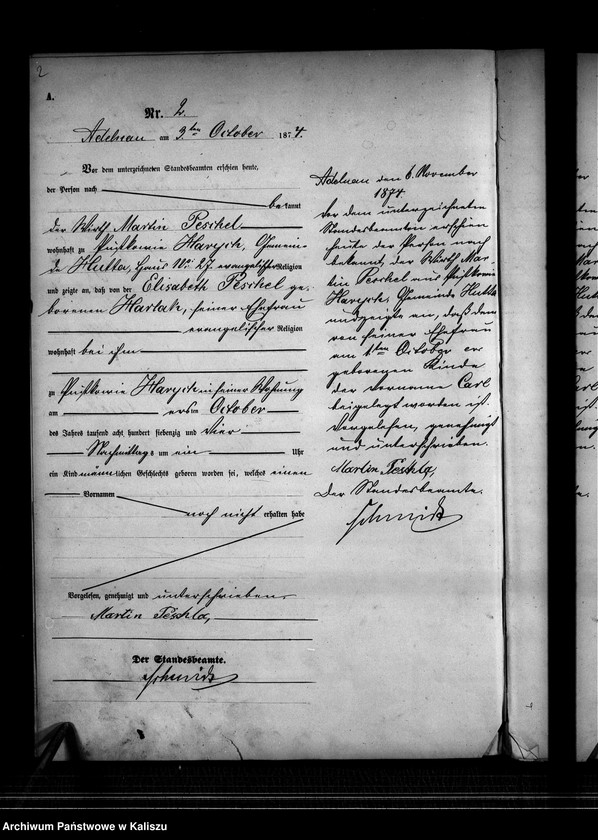 2
A.
Nr. 2.
Adelnau am 3ten October 1874.
Vor dem unterzeichneten Standesbeamten erschien heute,
der Person nach
bekannt
der Wirth Martin Peschel
wohnhaft zu Pustkowie Harych, Gemein-
de Hutta, Haus No: 27. evangelischer Religion
und zeigte an, daß von der Elisabeth Peschel ge-
borenen Hartak, seiner Ehefrau
evangelischer Religion
wohnhaft bei ihm
zu Pustkowie Harych in seiner Wohnung
am ersten October
des Jahrs tausend acht hundert siebenzig und vier
Nachmittags um ein Uhr
ein Kind männlichen Geschlechts geboren worden sei, welches einen
Vornamen
noch nicht erhalten habe
Vorgelesen, genehmigt und unterschrieben.
Martin Peschla,
Der Standesbeamte.
Schmidt
Adelnau den 6. November
1874.
Vor dem unterzeichneten
Standesbeamten erschien
heute der Person nach
bekannt, der Wirth Mar-
tin Peschel aus Pustkowie
Harych, Gemeinde Hutta
und zeigte an, daß dem
von seiner Ehefrau
am 1ten October er
geborenen Kinde
der Vorname Carl
beigelegt worden ist.
Vorgelesen, genehmigt
und unterschrieben.
Martin Peschla,
Der Standesbeamte.
Schmidt
Archiwum Państwowe w Kaliszu